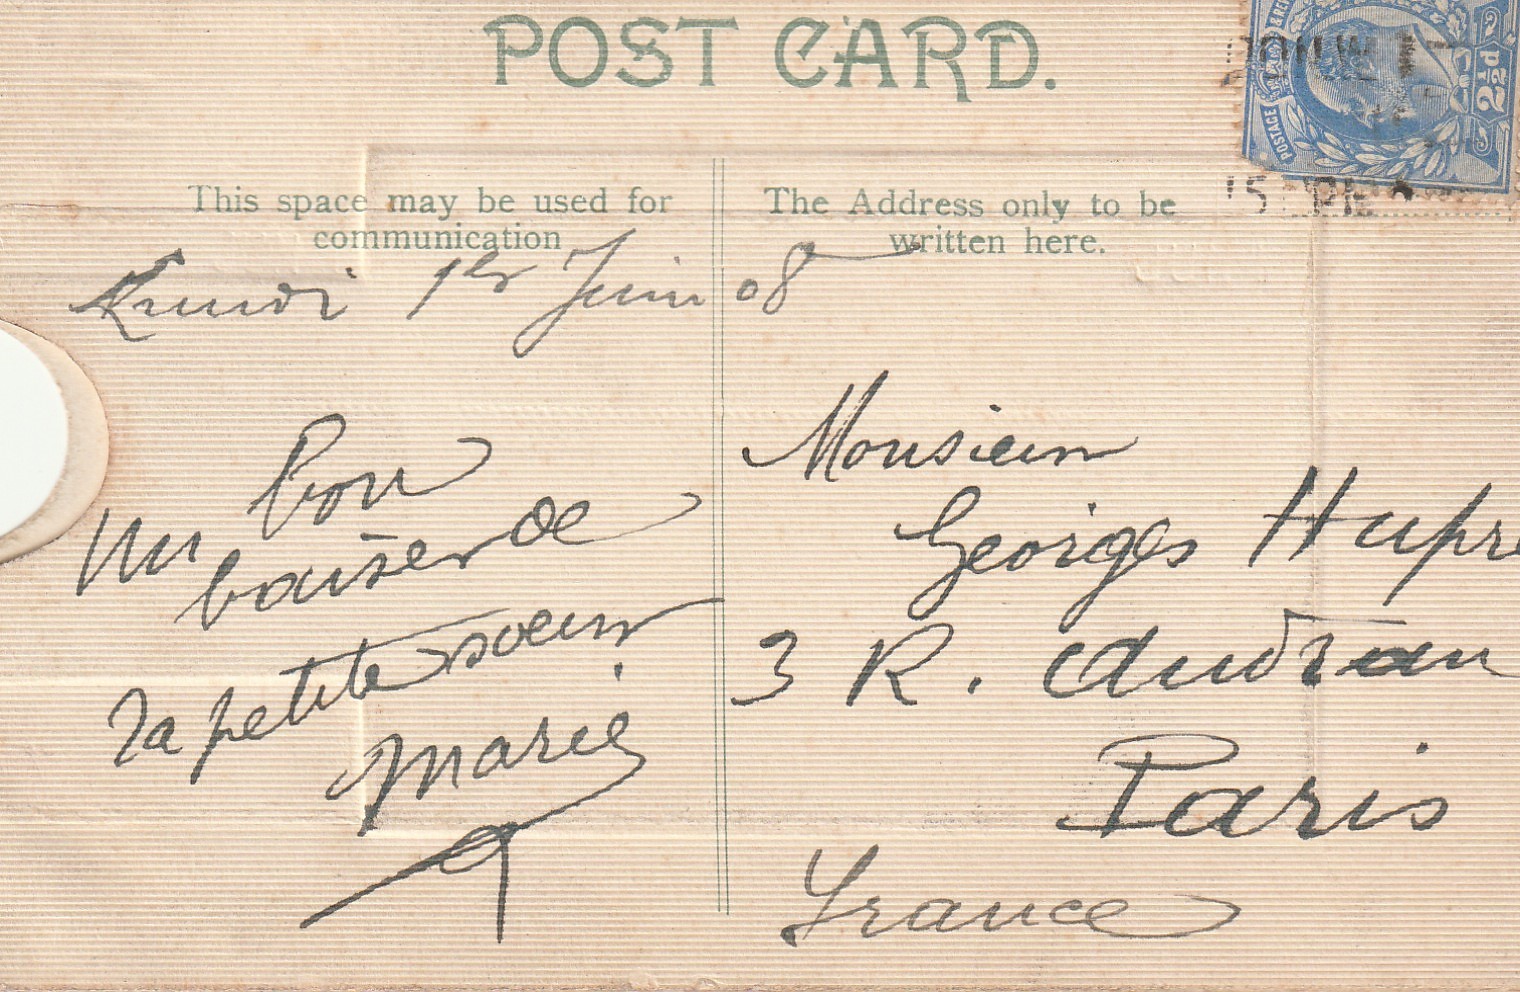 POST CARD.
POSTAGE
2½d
This space may be used for
communication
The Address only to be
written here.
Lundi 1er Juin 08
Un bon
baiser de
ta petite soeur
Marie
Monsieur
Georges Hupre
3 R. Audran
Paris
France